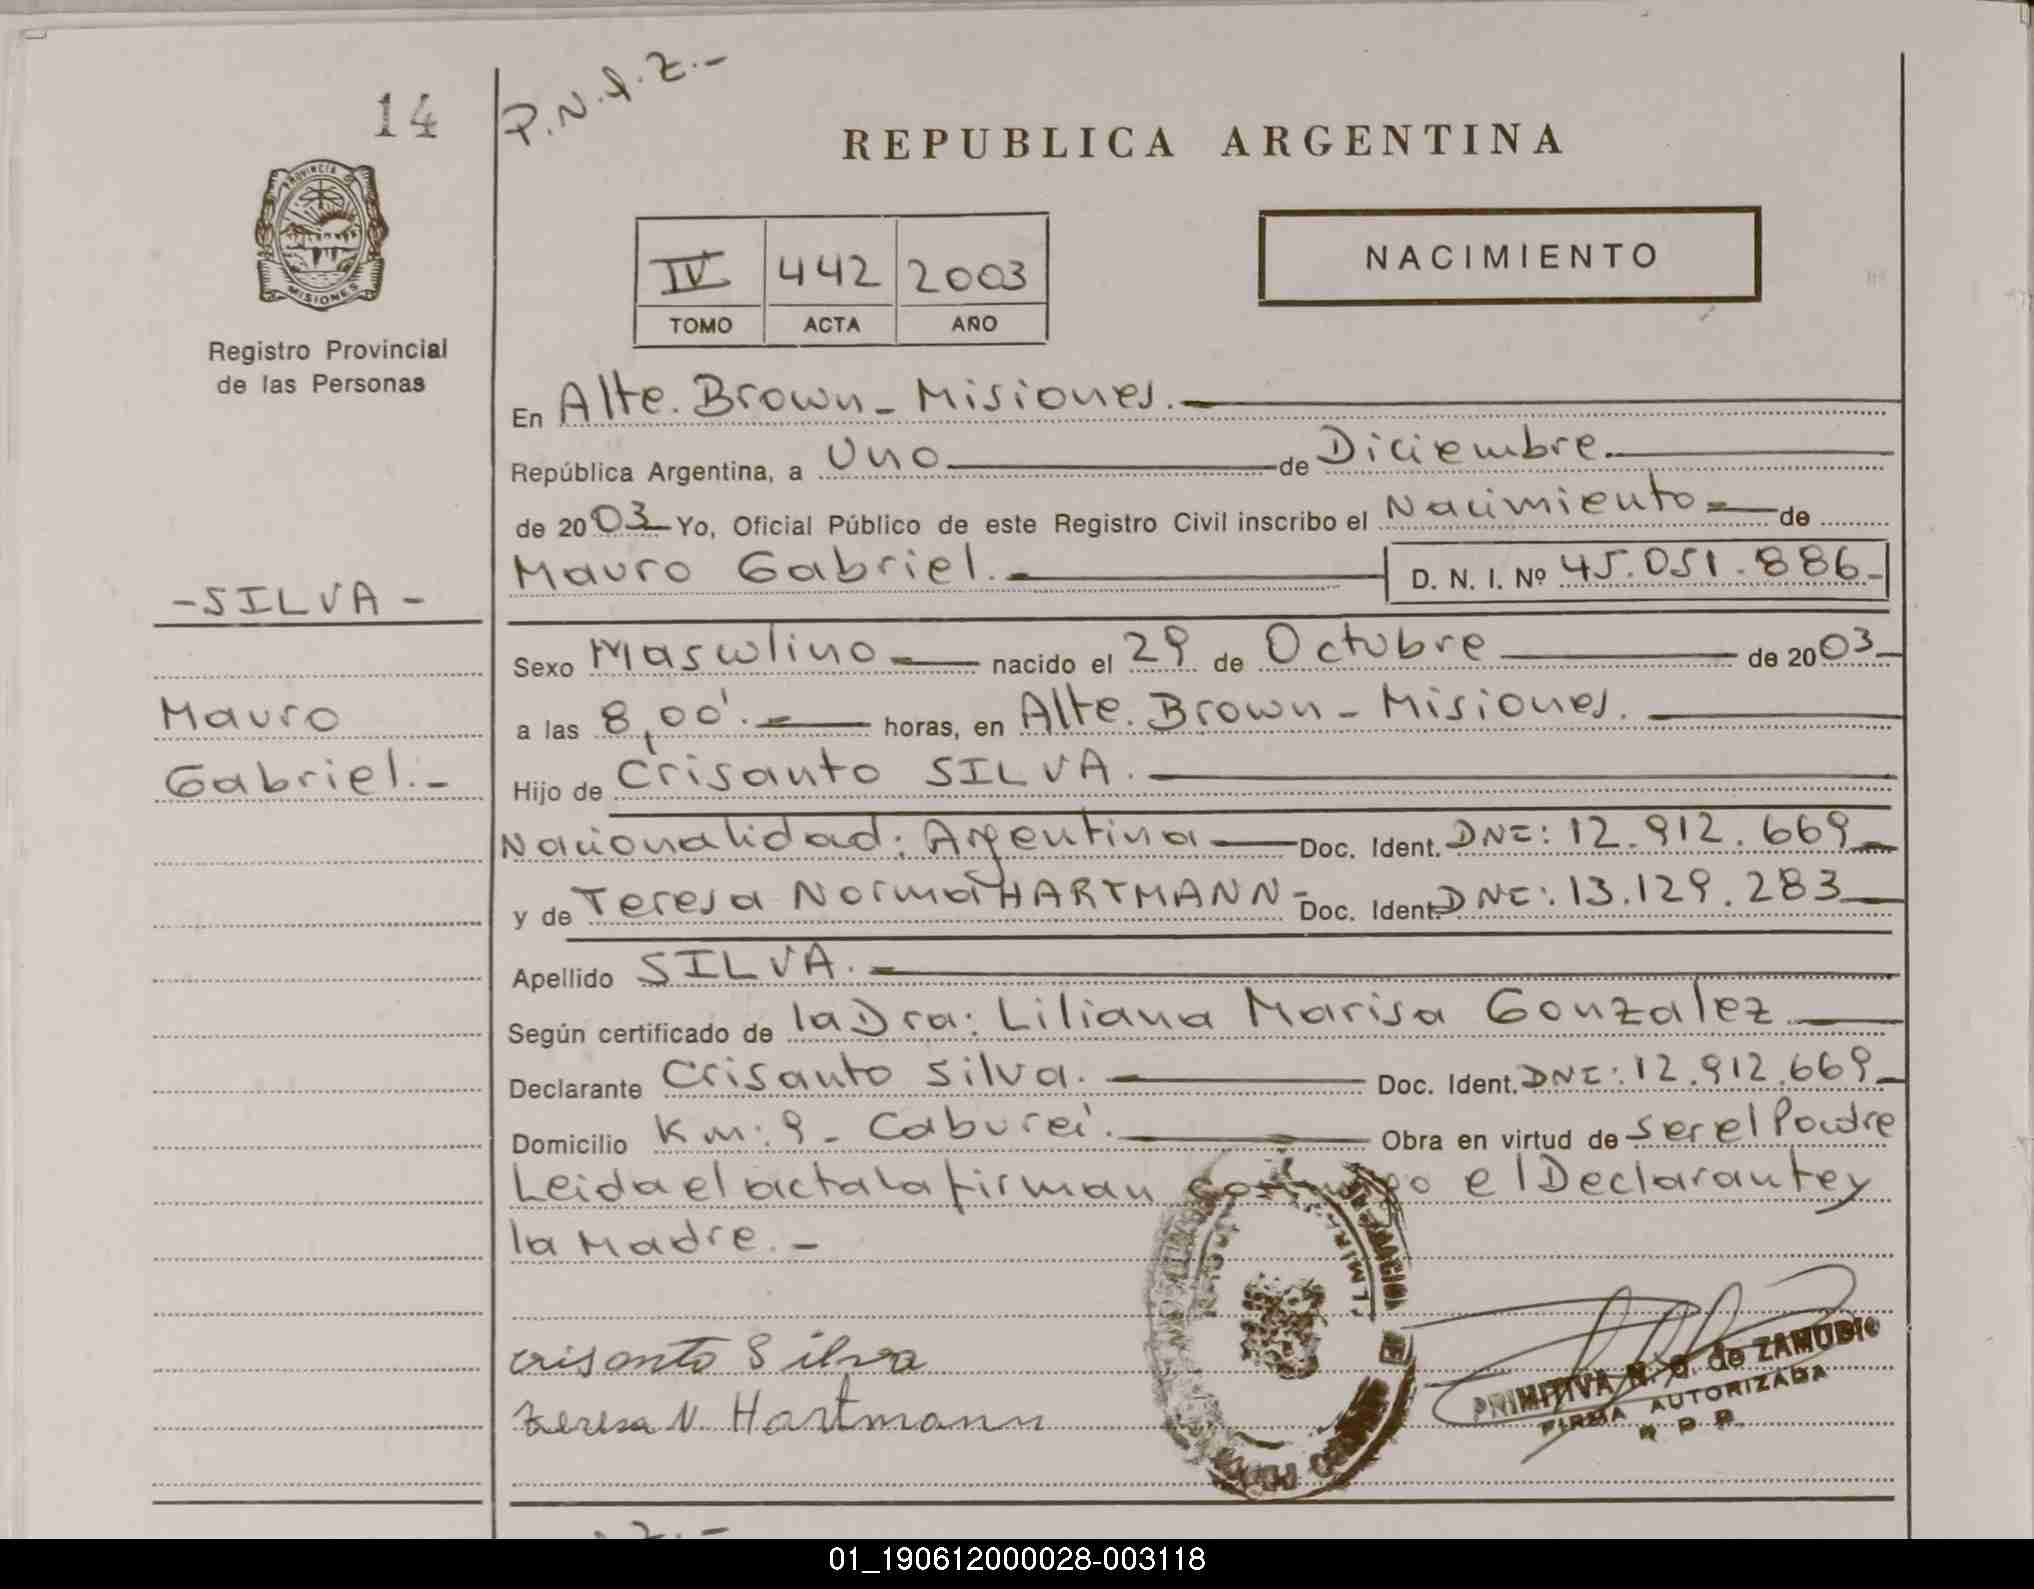 14
P.N.A.Z.-
REPUBLICA ARGENTINA
PROVINCIA DE
MISIONES
Registro Provincial
de las Personas
IV 442 2003
TOMO ACTA AÑO
NACIMIENTO
En Alte. Brown - Misiones.
República Argentina, a Uno de Diciembre.
de 2003 Yo, Oficial Público de este Registro Civil inscribo el Nacimiento de
Mauro Gabriel. D. N. I. Nº 45.051.886-
-SILVA-
Mauro
Gabriel.-
Sexo Masculino nacido el 29 de Octubre de 2003
a las 8,00'. horas, en Alte. Brown - Misiones.
Hijo de Crisanto SILVA.
Nacionalidad: Argentina Doc. Ident. DNI: 12.912.669
y de Teresa Norma HARTMANN- Doc. Ident. DNI: 13.129.283
Apellido SILVA.
Según certificado de la Dra: Liliana Marisa Gonzalez
Declarante Crisanto Silva. Doc. Ident. DNI: 12.912.669
Domicilio Km: 9 - Caburei. Obra en virtud de ser el Padre
Leida el acta la firman conmigo el Declarante y
la Madre.-
crisanto Silva
teresa N. Hartmann
PRIMITIVA N. G. de ZAMUDIO
FIRMA AUTORIZADA
R P P
01_190612000028-003118